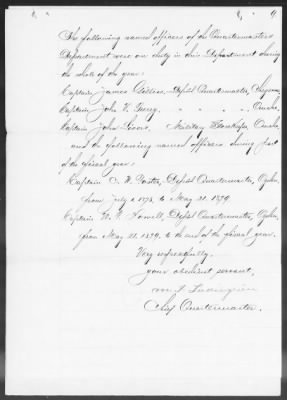 9
The following named officers of the Quartermasters
Department were on duty in this Department during
the whole of the year:
Captain James Gilliss, Depôt Quartermaster, Cheyenne
Captain John V. Furey, " " " Omaha,
Captain John Livers, Military Storekeeper, Omaha,
and the following named officers during part
of the fiscal year:
Captain C. W. Foster, Depôt Quartermaster, Ogden,
from July 1. 1878, to May 21. 1879
Captain Lowell, Depôt Quartermaster, Ogden,
from May 21. 1879, to the end of the fiscal year.
Very respectfully,
your obedient servant,
M. I. Ludington
Chief Quartermaster.